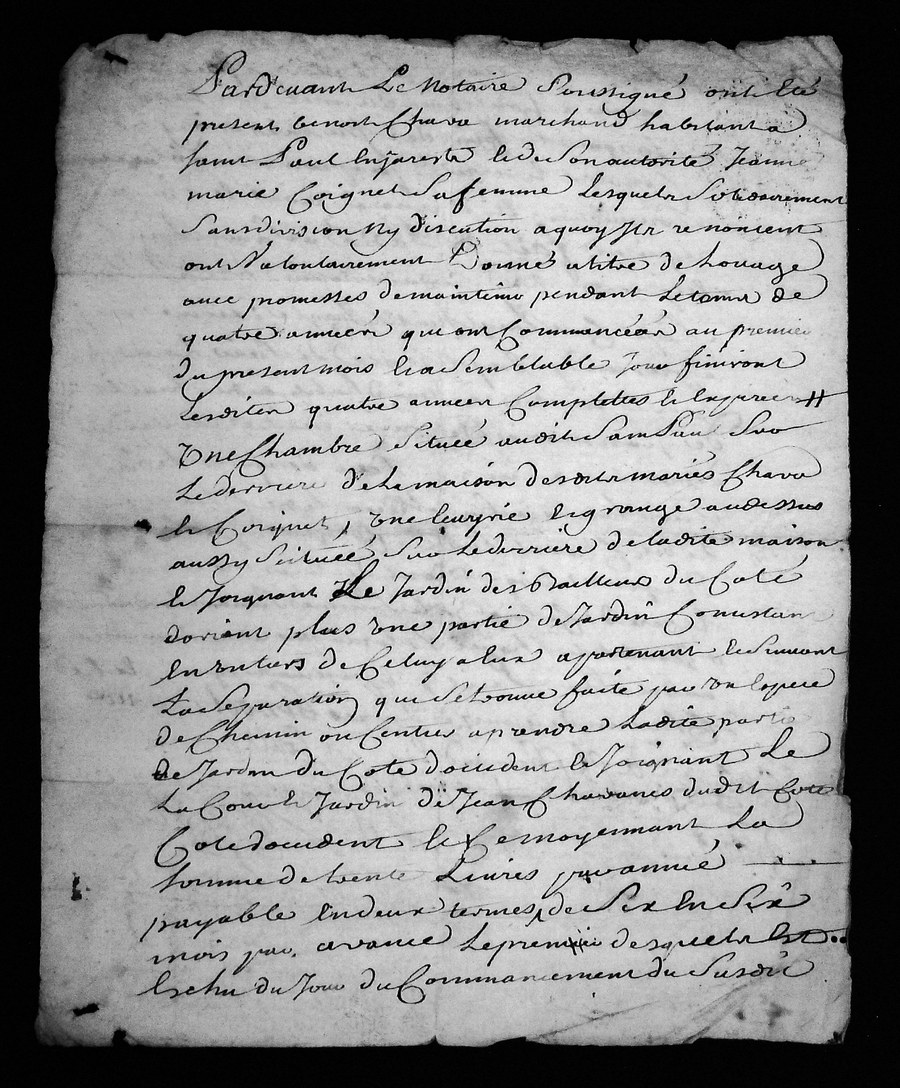 Pardevant Le Notaire Soussigné ont Eté
present benoit Chava marchand habitant a
saint Paul Enjarest & de Son autorité Jeanne
marie Coignet Sa femme Lesquels Solidairement
Sans division Ny discution a quoy Ils renoncent
ont Volontairement Donné a titre de Louage
avec promesses de maintenir pendant Le terme de
quatre années qui ont Commancées au premier
du present mois & a Semblable Jour finiront
Lesdites quatre années Complettes &
Une Chambre Situeé audit Saint Paul Sur
Le derriere de La maison desdits mariés Chava
& Coignet, une Ecuyrie & grange au dessus
aussy Scituée Sur Le derriere de ladite maison
& Joignant Le Jardin des Bailleurs du Coté
dorient plus une partie de Jardin Consistant
En un tiers de Celuy a Eux apartenant & Suivant
La Separation qui Se trouve faite par un Espece
de Chemin ou Centier a prendre Ladite partie
de Jardin du Coté doccident & Joignant Le
La Cour & Jardin de Jean Chavanes dudit Coté
Coté doccident & Ce moyennant La
somme de trente Livres par anneé
payable En deux termes, de Six En Six
mois par avance Le premier desquels Est
Echu du Jour du Commancement du Susdit